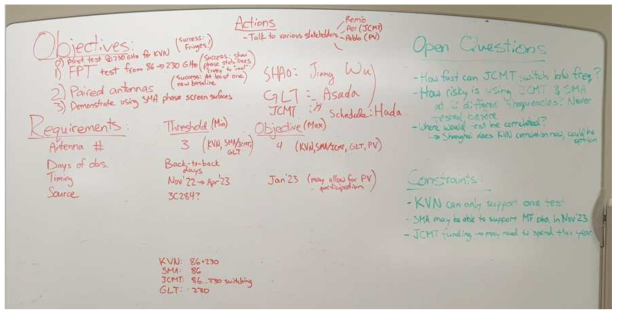 Objectives:
0) Pilot test @ 230 GHz for KVN (Success: Fringes)
1) FPT test from 86 → 230 GHz (Success: show phase
2) Paired antennas (Success: At least one new baseline
3) Demonstrate using SMA phase screen surfaces
Actions
- Talk to various stakeholders
Remo
(JCMT)
Pablo (PV)
SHAO: Jiang Wu
GLT: Asada
JCMT:
Schedule: Hada
Requirements:
Threshold (Min)
Objective (Max)
Antenna #
3 (KVN, SMA/JCMT, GLT)
4 (KVN, SMA/JCMT, GLT, PV)
Days of obs.
Back-to-back days
Timing
Nov'22 → Apr'23
Jan'23 (may allow for PV participation)
Source
3C284?
KVN: 86+230
SMA: 86
JCMT: 86 230 switching
GLT: 230
Open Questions
- How fast can JCMT switch b/w freq?
- How risky is using JCMT & SMA
at 2 different frequencies? Never
tested before
- Where would test be correlated?
↳ Shanghai does KVN correlation now, could be
option
Constraints:
- KVN can only support one test
- SMA may be able to support MF obs. in Nov'23
- JCMT funding → may need to spend this year